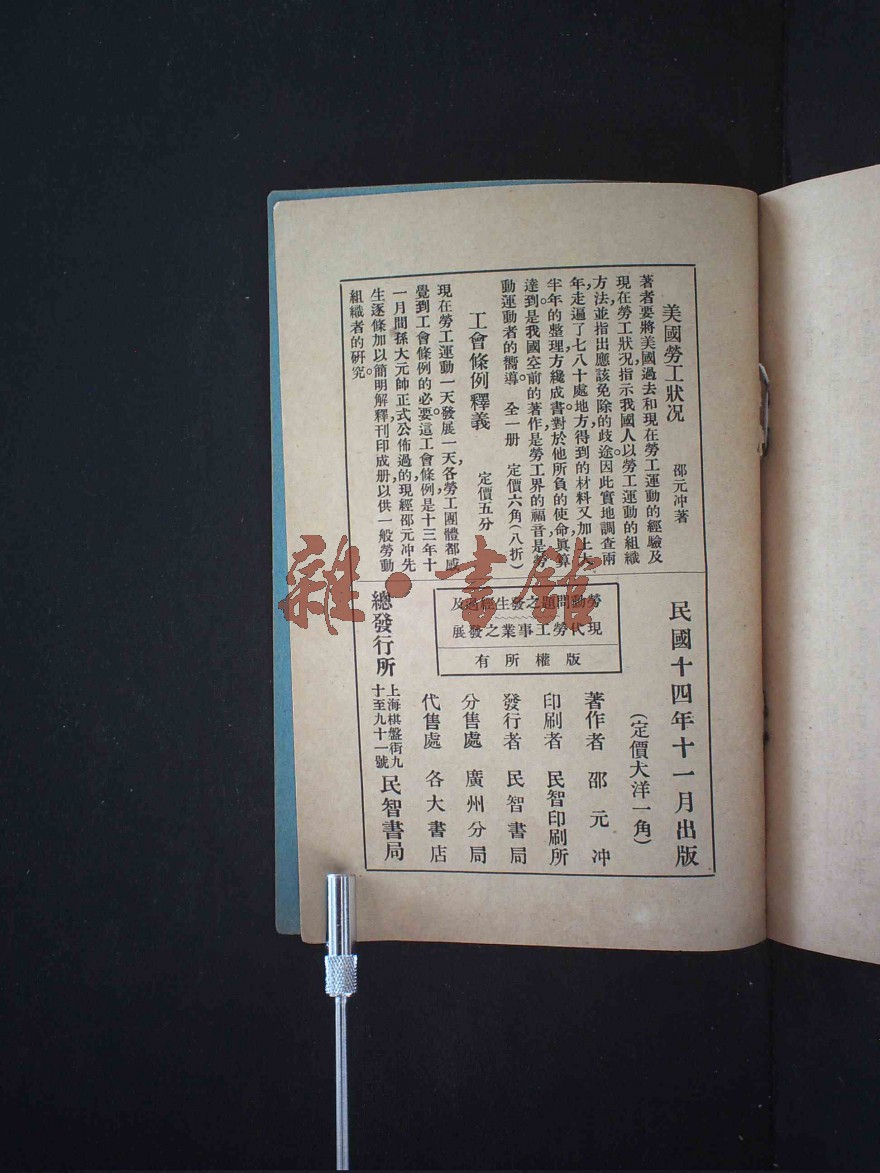 美國勞工狀况　邵元冲著
著者要將美國過去和現在勞工運動的經驗及
現在勞工狀况指示我國人以勞工運動的組織
方法，並指出應該免除的歧途。因此實地調查兩
年，走遍了七八十處地方，得到的材料，又加上大
半年的整理，方纔成書。對於他所負的使命，眞算
達到。是我國空前的著作，是勞工界的福音，是勞
動運動者的嚮導。　全一册　定價六角（八折）
工會條例釋義　定價五分
現在勞工運動一天發展一天，各勞工團體都感
覺到工會條例的必要。這工會條例是十三年十
一月間孫大元帥正式公佈過的，現經邵元冲先
生逐條加以簡明解釋，刊印成册，以供一般勞動
組織者的研究。
民國十四年十一月出版
（定價大洋一角）
勞動問題之發生經過及
現代勞工事業之發展
版權所有
著作者　邵元冲
印刷者　民智印刷所
發行者　民智書局
分售處　廣州分局
代售處　各大書店
總發行所　上海棋盤街九十至九十一號　民智書局
雜·書館